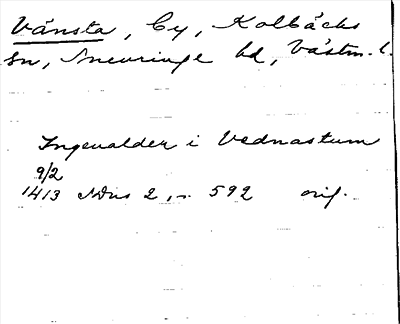 Vänsta, By, Kolbäcks
sn, Snevringe hd, Västm. l.
Ingeualder i Vednastum
9/2
1413 SDns 2, s. 592 orig.